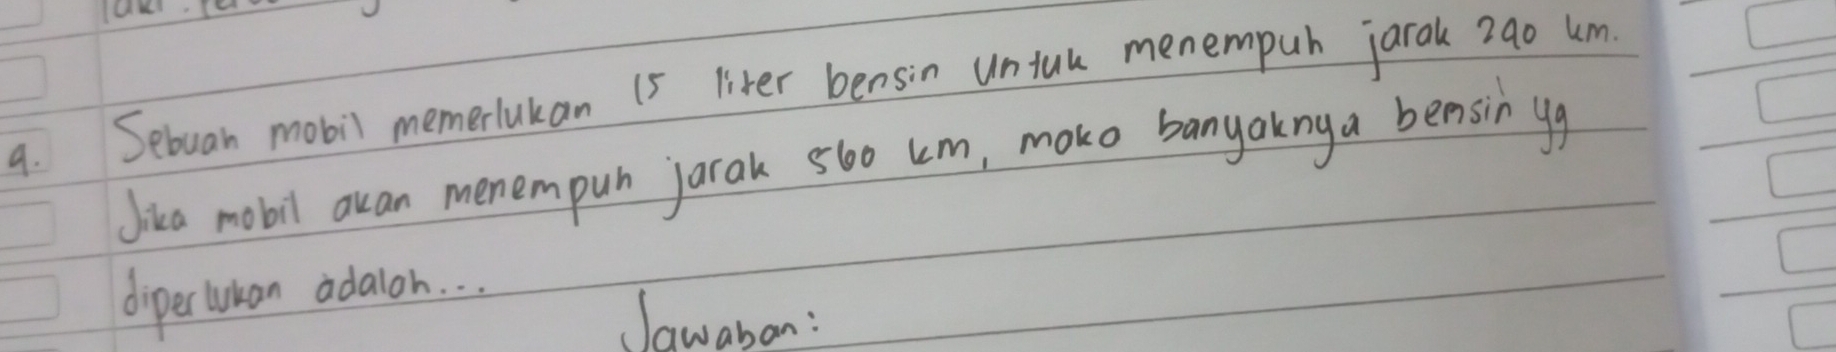 9. Sebuah mobil memerlukan 15 liter bensin untuk menempuh jarak 240 km.
Jika mobil akan menempuh jarak 560 km, maka banyaknya bensin yg
diperlukan adalah...
Jawaban: